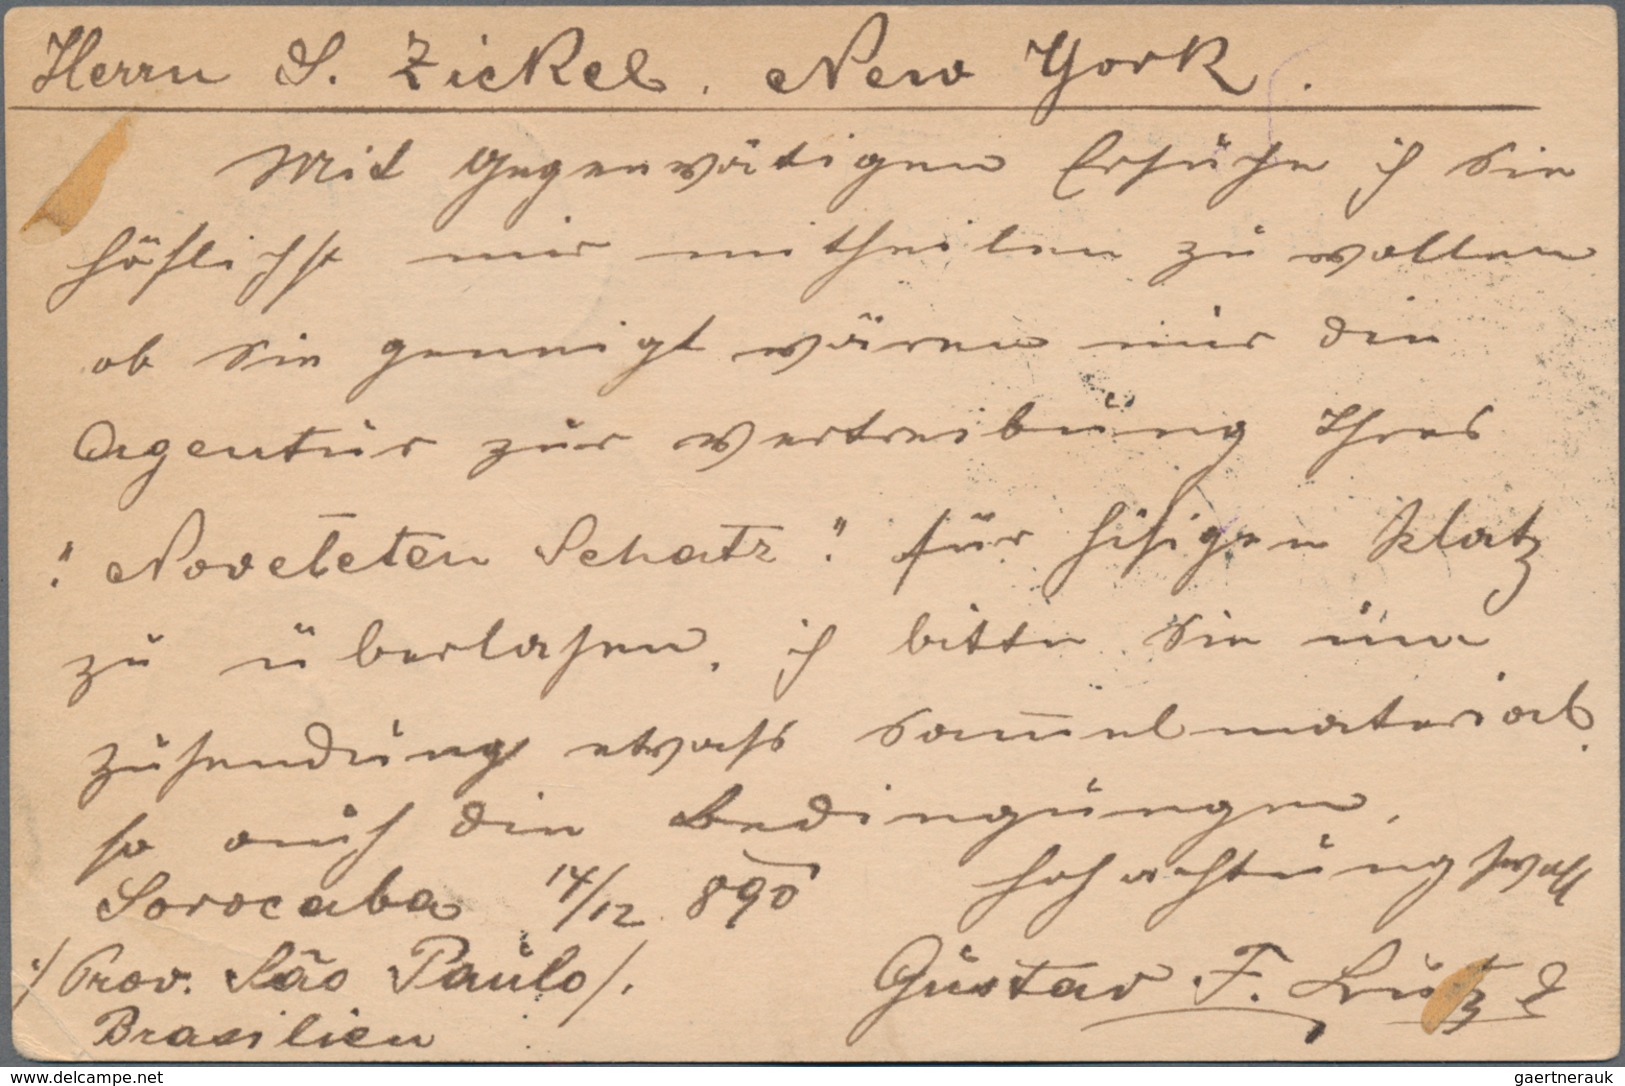 Herrn S. Zickel. New York.
Mit Gegenwätigen Ersuche ich Sie
höflichst mir mitheilen zu wollen
ob Sie geneigt wären mir die
Agentur zur Vertreibung Ihres
"Noveleten Schatz" für hisigen Platz
zu überlasen, ich bitte Sie um
zusendung etwass Sam̄elmaterial,
so auch die Bedingungen.
Sorocaba 14/12 890 Hochachtungsvoll
./ Prov. São Paulo /. Gustav F. Lutz
Brasilien
www.delcampe.net gaertnerauk